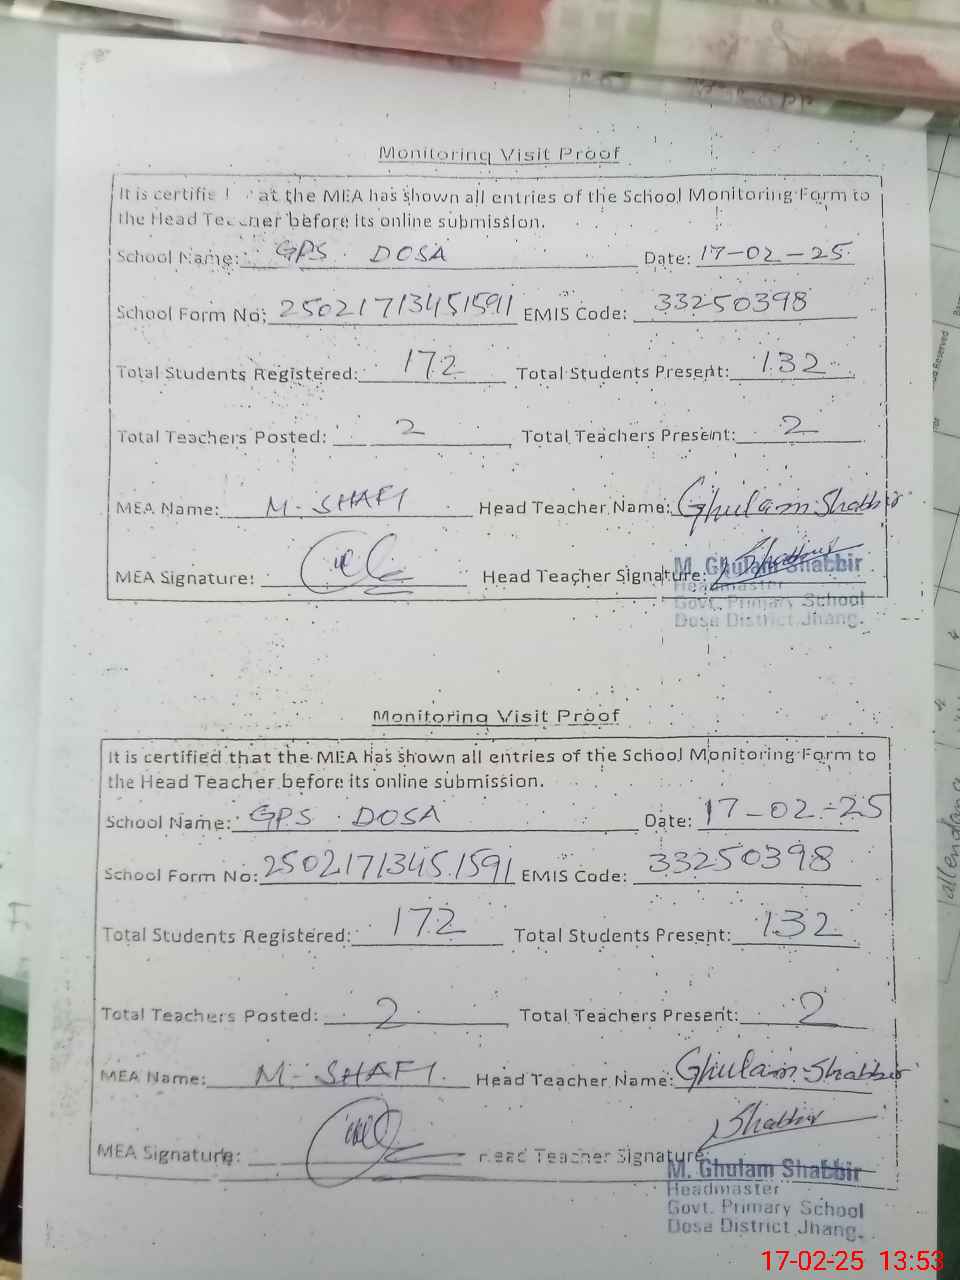 Monitoring Visit Proof
It is certifie at the MEA has shown all entries of the School Monitoring Form to
the Head Teacher before its online submission.
School Name: GPS DOSA Date: 17-02-25
School Form No: 25021713451591 EMIS Code: 33250398
Total Students Registered: 172 Total Students Present: 132
Total Teachers Posted: 2 Total Teachers Present: 2
MEA Name: M. SHAFI Head Teacher Name: Ghulam Shabbir
MEA Signature: Head Teacher Signature: Shabbir
M. Ghulam Shabbir
Headmaster
Govt. Primary School
Dosa District Jhang.
Monitoring Visit Proof
It is certified that the MEA has shown all entries of the School Monitoring Form to
the Head Teacher before its online submission.
School Name: GPS DOSA Date: 17-02-25
School Form No: 25021713451591 EMIS Code: 33250398
Total Students Registered: 172 Total Students Present: 132
Total Teachers Posted: 2 Total Teachers Present: 2
MEA Name: M. SHAFI Head Teacher Name: Ghulam Shabbir
MEA Signature: Head Teacher Signature: Shabbir
M. Ghulam Shabbir
Headmaster
Govt. Primary School
Dosa District Jhang.
17-02-25 13:53